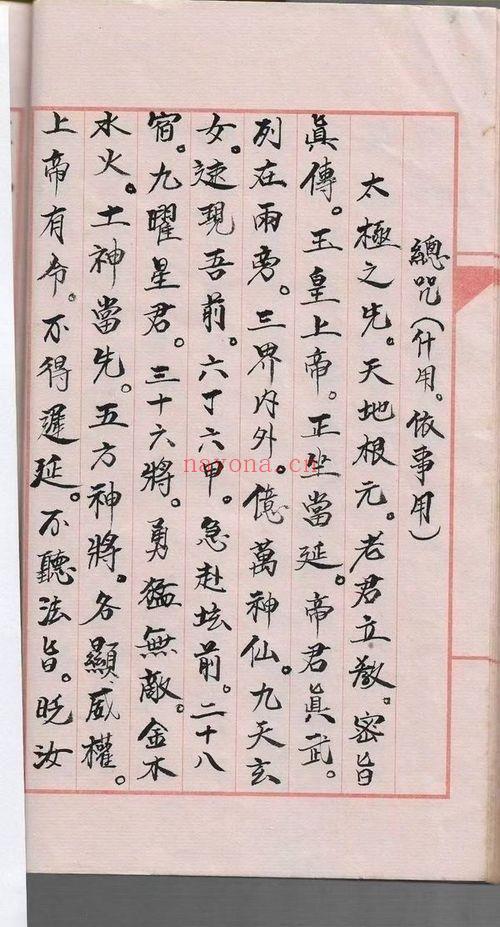 總咒(什用。依事用)
太極之先。天地根元。老君立教。密旨
真傳。玉皇上帝。正坐當延。帝君真武。
列在兩旁。三界内外。億萬神仙。九天玄
女。速現吾前。六丁六甲。急赴坛前。二十八
宿。九曜星君。三十六將。勇猛無敵。金木
水火。土神當先。五方神將。各顯威權。
上帝有令。不得遲延。不聽法旨。貶汝
nayona.cn